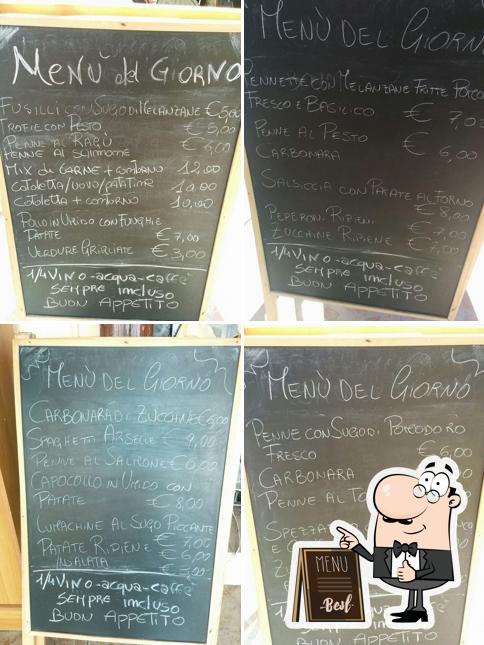 MENÙ del GIORNO
FUSILLI CON SUGO DI MELANZANE € 5,00
TROFIE CON PESTO € 5,00
PENNE AL RAGÙ € 6,00
PENNE AI
MIX di CARNE + contorno 12,00
COTOLETTA/UOVO/PATATINE 10,00
COTOLETTA + contorno 10,00
POLLO IN UMIDO CON FUNGHI E
PATATE € 7,00
VERDURE GRIGLIATE € 3,00
1/4 VINO -acqua-caffè
SEMPRE incluso
BUON APPETITO
MENÙ DEL GIORNO
PENNETTE CON MELANZANE FRITTE
FRESCO E BASILICO € 7,00
PENNE AL PESTO
CARBONARA € 6,00
SALSICCIA CON PATATE AL FORNO
€ 8,00
PEPERONI RIPIENI € 7,00
ZUCCHINE RIPIENE € 7,00
1/4 VINO -acqua-caffè
SEMPRE incluso
BUON APPETITO
MENÙ DEL GIORNO
CARBONARA DI ZUCCHINE € 6,00
SPAGHETTI ARSELLE € 9,00
PENNE AL SALMONE € 6,00
CAPOCOLLO IN UMIDO CON
PATATE € 8,00
LUMACHINE AL SUGO PICCANTE
€ 7,00
PATATE RIPIENE € 6,00
INSALATA € 3,00
1/4 VINO -acqua-caffè
SEMPRE incluso
BUON APPETITO
MENÙ DEL GIORNO
PENNE CON SUGO DI POMODORO
FRESCO € 6,00
CARBONARA
PENNE AL
SPEZZA
E
1/4
BUON APPETITO
MENU
Best